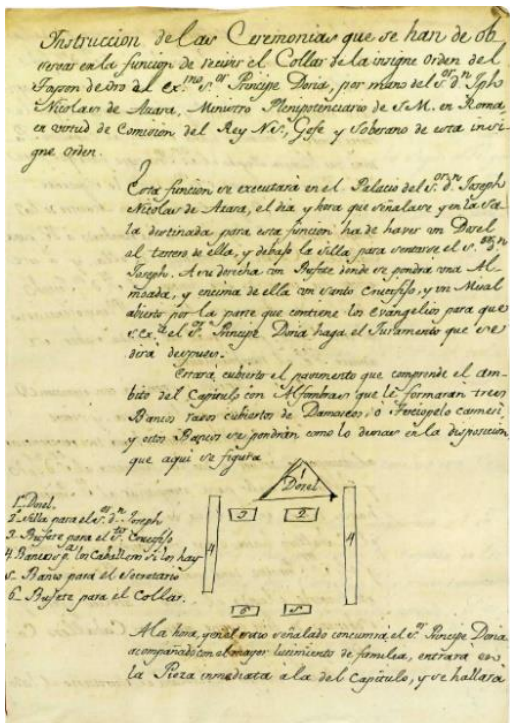 Instruccion de las Ceremonias que se han de ob
servar en la funcion de recivir el Collar de la insigne orden del
Toyson de oro del ex.mo s.or Principe Doria, por mano del s.or d.n Jph
Nicolas de Azara, Ministro Plenipotenciario de S.M. en Roma,
en virtud de Comision del Rey N.S., Gefe y Soberano de esta insi-
gne orden.
Esta funcion se executará en el Palacio del s.or d.n Joseph
Nicolas de Azara, el dia y hora que señalare y en la sa-
la destinada para esta funcion ha de haver un Dosel
al testero de ella, y debajo la silla para sentarse el s.or d.n
Joseph. A su derecha un Bufete donde se pondrá una Al-
moada, y encima de ella un santo Crucifijo, y un Misal
abierto por la parte que contiene los evangelios para que
s. ex.a el s.r Principe Doria haga el Juramento que se
dirá despues.
Estará cubierto el pavimento que comprende el ám-
bito del Capitulo con Alfombras que le formarán tres
Bancos rasos cubiertos de Damasco, ó Terciopelo carmesi
y estos Bancos se pondrán como lo demas en la disposicion
que aqui se figura
1
Dosel
3 2
4 4
6 5
1_ Dosel.
2_ Silla para el s.or d.n Joseph
3_ Bufete para el s.to Crucifijo
4_ Bancos p.a los Caballeros si los hay
5_ Banco para el Secretario
6_ Bufete para el Collar.
A la hora, y en el señalado concurrirá el s.or Principe Doria
acompañado con el mayor lucimiento de familia, entrará en
la Pieza inmediata a la del Capitulo, y se hallará